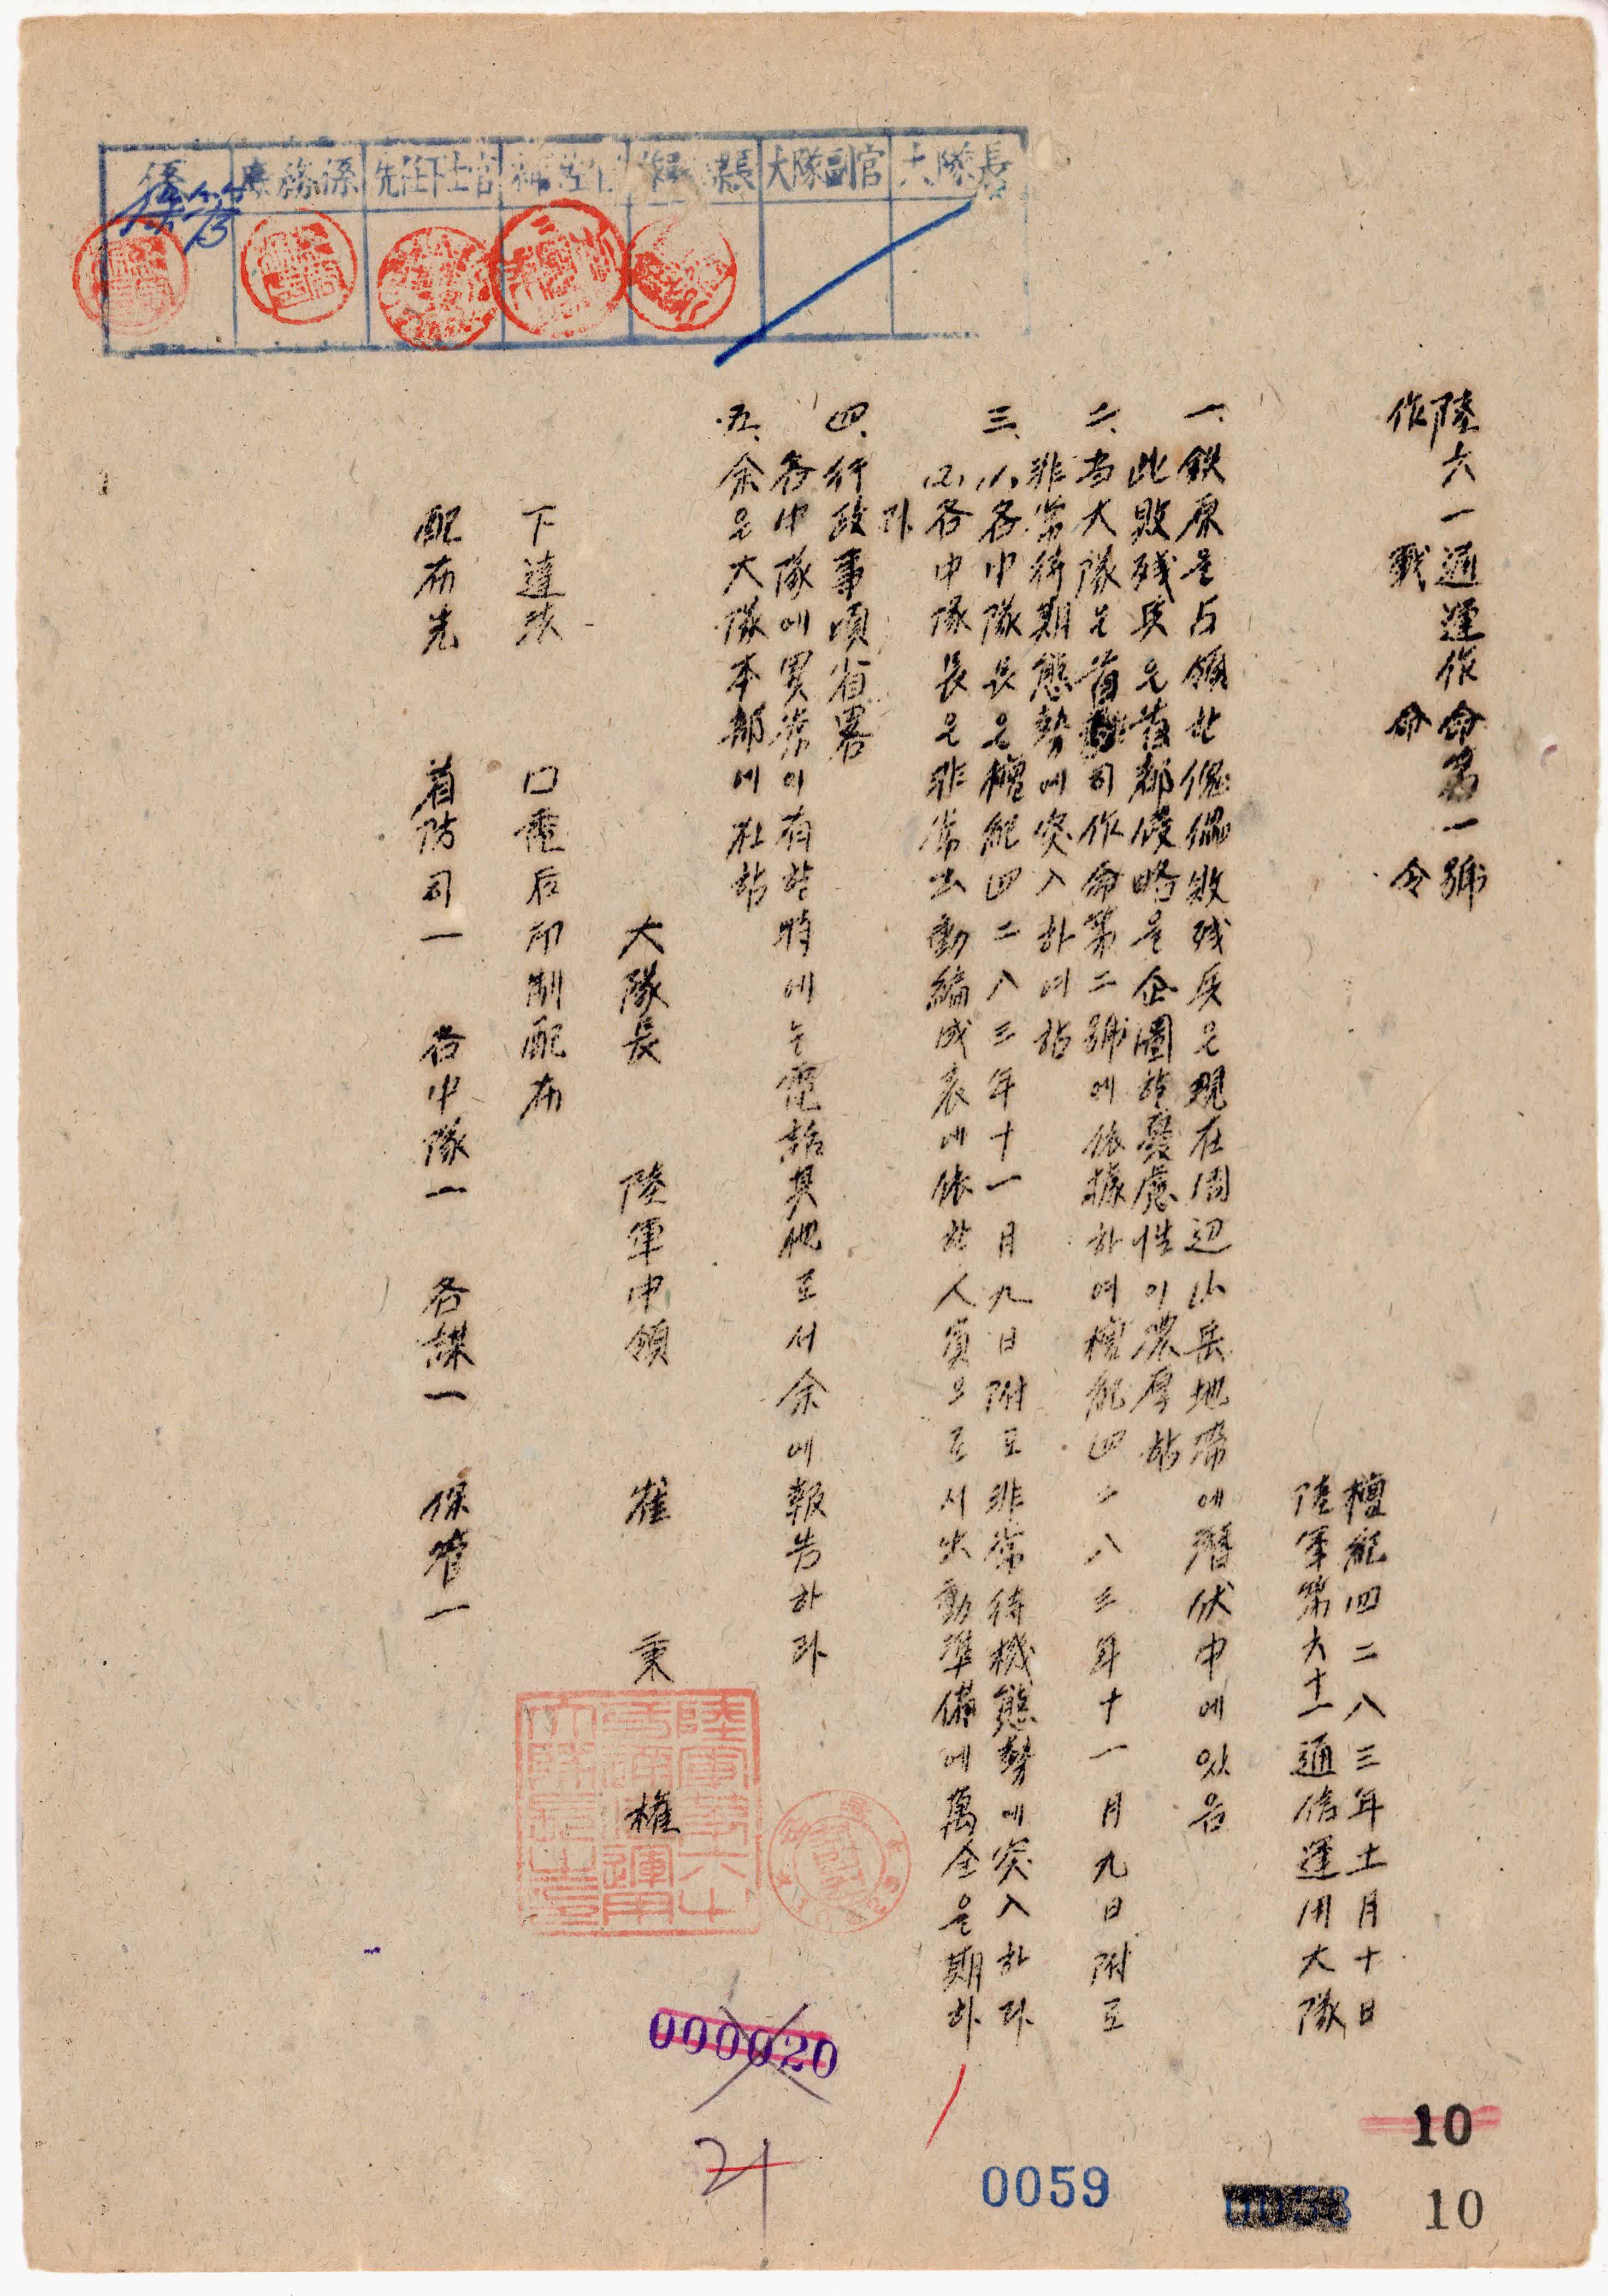 大隊長
大隊副官
先任下士官
庶務係
係
保管
陸六一通運作命第一號
作戰命令
檀紀四二八三年十一月十日
陸軍第六十一通信運用大隊
一. 鉄原을 占領한 傀儡敗残兵은 現在 周辺山岳地帯에 潛伏中에 있음
此 敗残兵은 首都侵略을 企圖할 憂慮性이 濃厚함
二. 当大隊는 首防司作命第二號에 依據하여 檀紀四二八三年十一月九日附로
非常待期態勢에 突入하여 있음
三. (1) 各中隊長은 檀紀四二八三年十一月九日附로 非常待機態勢에 突入하라
(2) 各中隊長은 非常出動編成表에 依한 人員으로서 出動準備에 萬全을 期하
라
四. 行政事項省畧
各中隊에 異常이 有할 時에는 電話其他로서 余에 報告하라
五. 余은 大隊本部에 在함
大隊長 陸軍中領 崔秉權
下達法 口電后印刷配布
配布先 首防司一 各中隊一 各課一 保管一
000020
21
0059
10
10